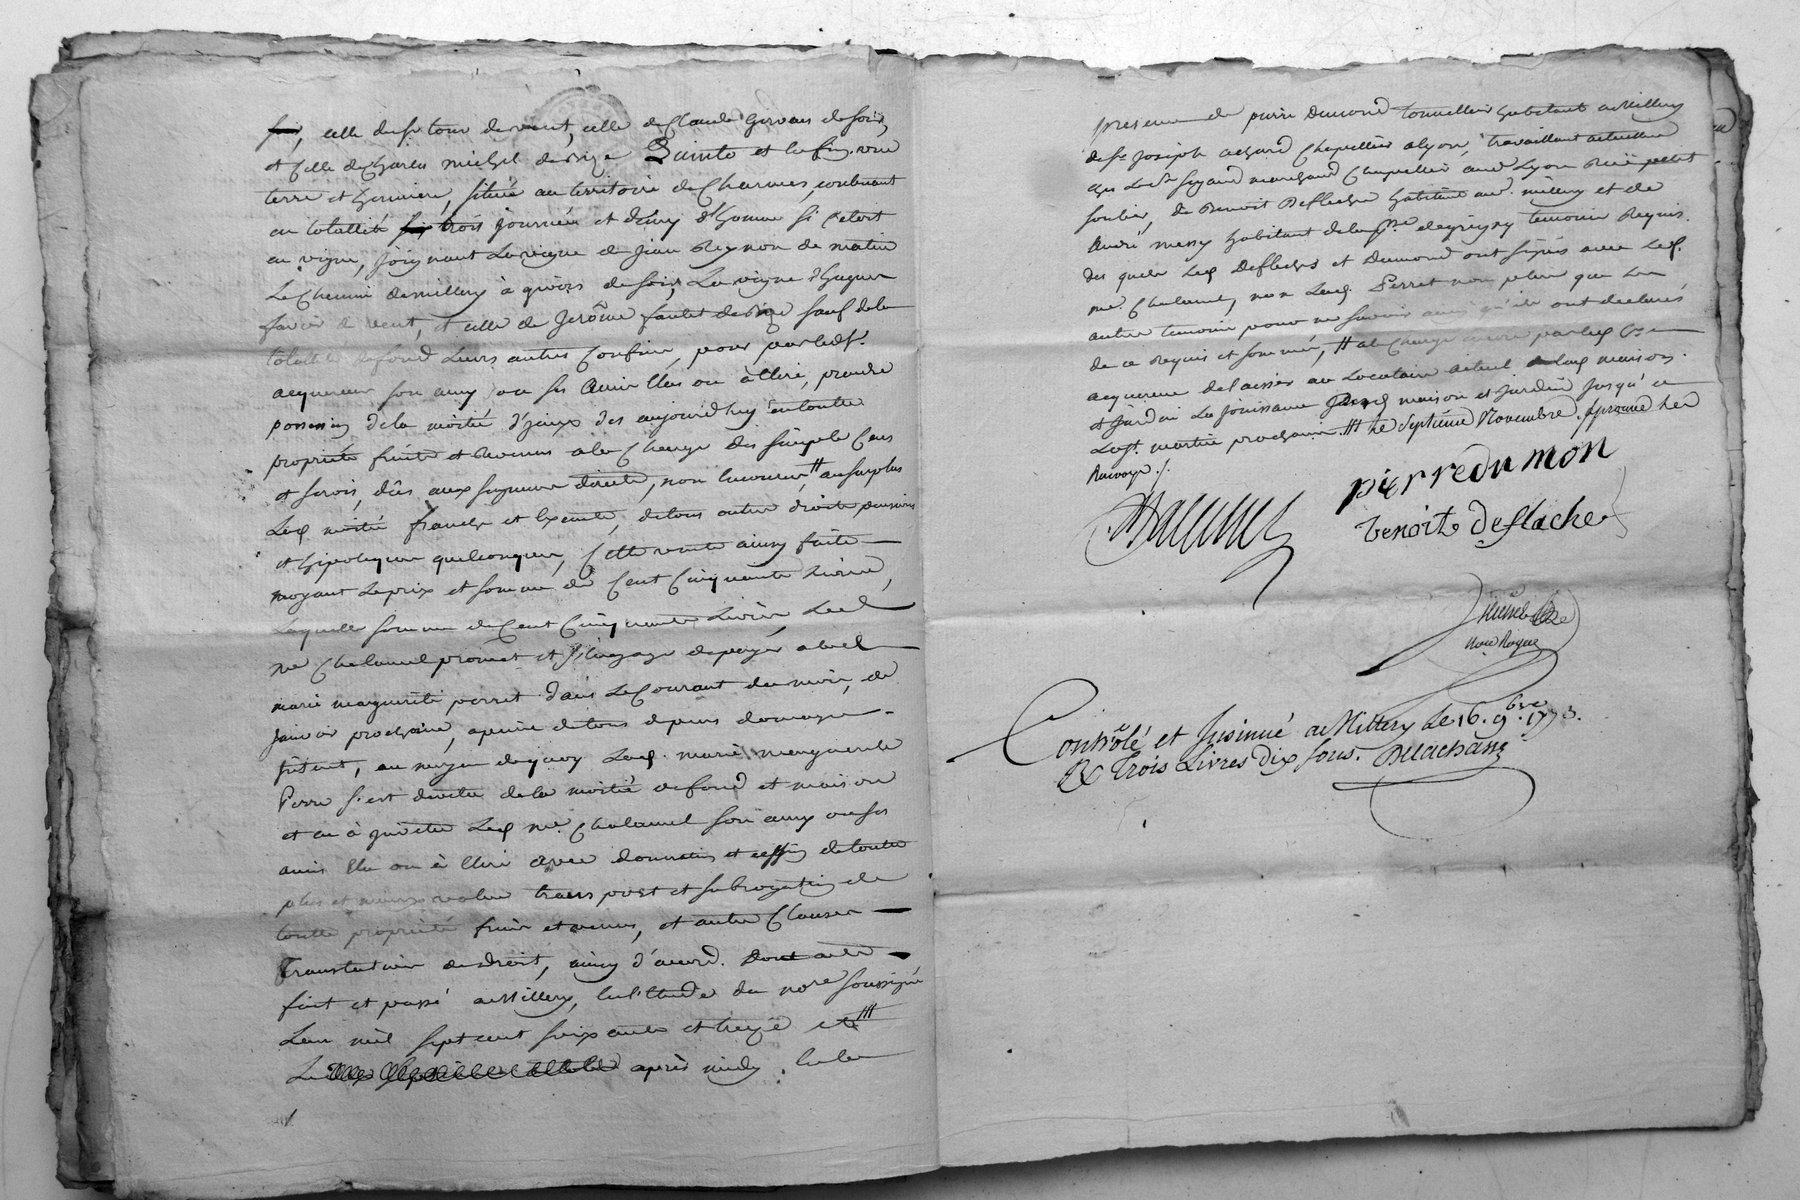 soir, celle du sr tour de vent, celle de Claude Gervais de soir,
et celle de Charles michel de bize. Quinto et enfin. une
terre et hermiere, située au territoire de Charmes, contenant
en totallité trois journées et demy d'homme si c'etoit
en vigne, joignant la vigne de jean Reynon de matin
Le Chemin de millery à givors de soir, La vigne d'hugues
favier de vent, et celle de Jerôme de bize sauf de la
totalité de fond Leurs autres Confins, pour par ledt.
acquereur son amy ou ses amis élus ou à élire, prendre
possession de la moitié d'yceux des aujourdhuy en toute
propriété fruits et Revenus a la Charge des simple Cens
et servis, dûs aux seigneurs directs, non encourus, # au surplus
Led. moitié franche et Exempte, de tous autres droits pensions
et hipoteques quelconques, Cette vente ainsy faite
moyant Le prix et somme de Cent Cinquante Livres,
Laquelle somme de Cent Cinquante Livres Led.
me Chalamel promet et s'engage de payer a lad.
marie marguerite perret dans Le Courant du mois, de
janvier prochain, a peine de tous depens domages
intérêt, au moyen de quoy Lad. marie marguerite
Perret s'est devetue de la moitié de fond et maison
et en à Led. me. Chalamel son amy ou ses
amis élu ou à élire avec donnation et cession de toute
plus et moins value transport et subrogation de
toute propriété fruits et revenus, et autres Clauses
Translatives de droit, ainsy d'accord. Dont acte
fait et passé à Millery, En l'Etude du nore soussigné
L'an mil sept cent soixante et treize et ///
Le après midy. En la
presence de pierre Dumond tonnellier habitant a Millery
de sr Joseph achard Chapellier a lyon, travaillant actuellement
ches Le sr marchand Chapellier aud. Lyon
de Benoit Defleche habitant aud. millery et de
André messy habitant de la psse. de grigny temoins Requis.
des quels Les Defleches et Dumond ont signés avec Led.
me. Chalamel, non Lad. Perret non plus que les
autres temoins pour ne savoir ainsi qu'ils ont declarés
de ce Requis et sommés, # a la Charge encore par led.
acquereur de laisser au Locataire actuel desd. maison
et jardin La jouissance maison et jardin jusqu'a
La st. martin prochaine. /// Le septieme Novembre. approuvé Les
Renvoys ./.
Chalamel
pierre du mon
benoit deflache
Michel
Nore Royal
Contrôlé et Insinué a Millery Le 16. 9bre. 1773.
R Trois Livres dix sous. Delachanz